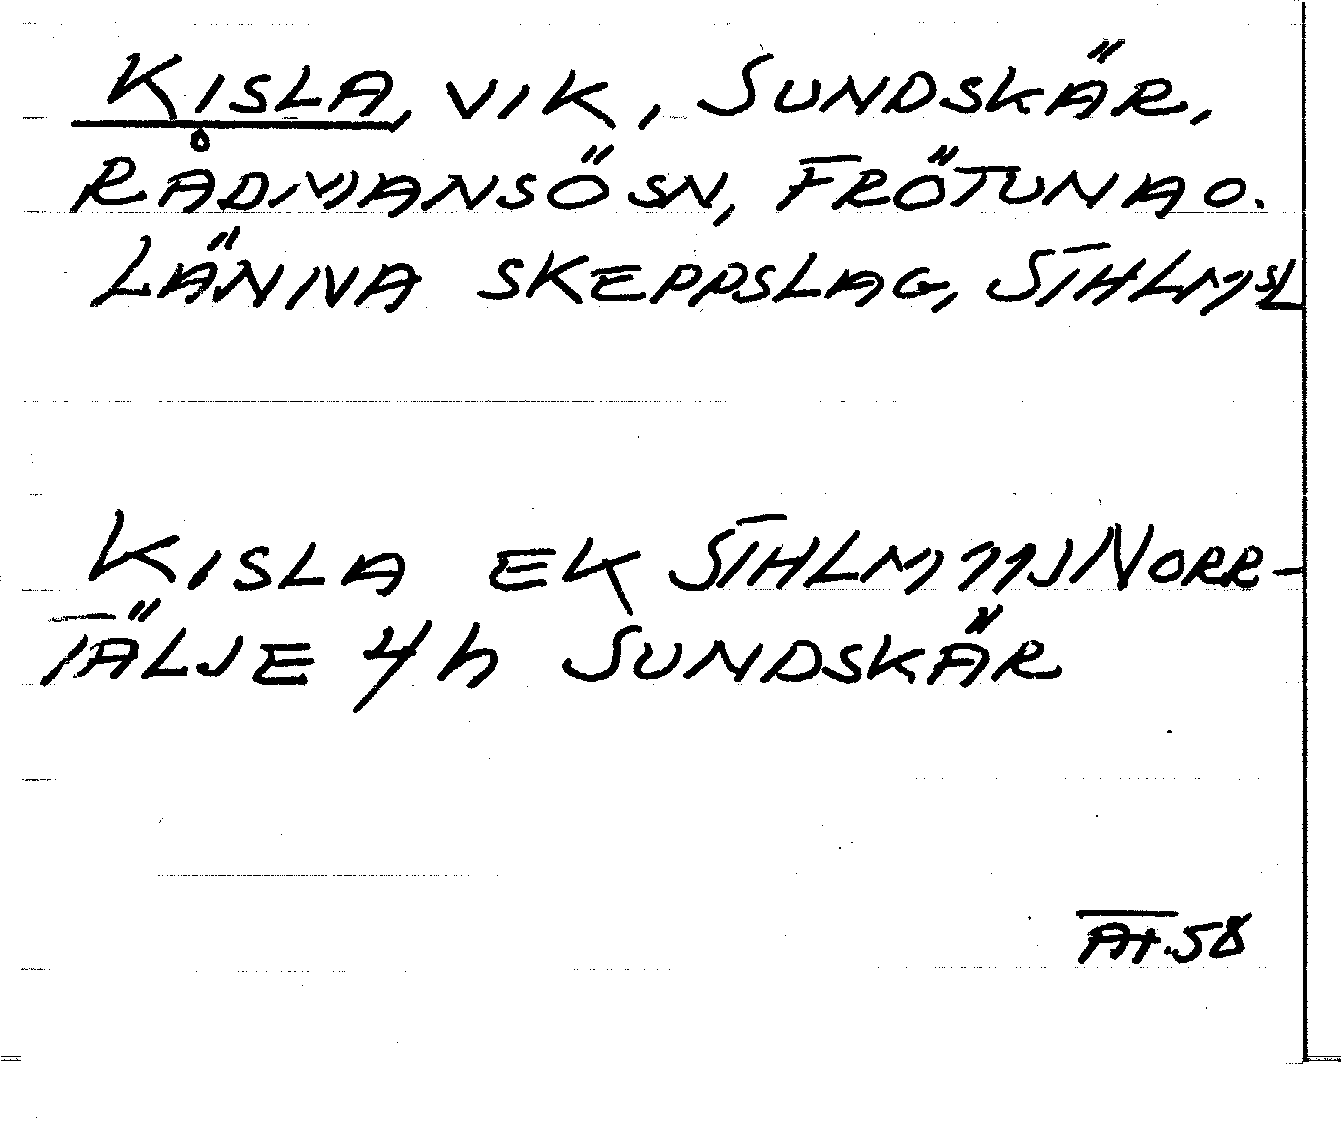 KISLA, VIK, SUNDSKÄR,
RÅDMANSÖ SN, FRÖTUNA O.
LÄNNA SKEPPSLAG, STHLMSL
KISLA EK STHLM 11J NORR-
TÄLJE 4h SUNDSKÄR
AH.58